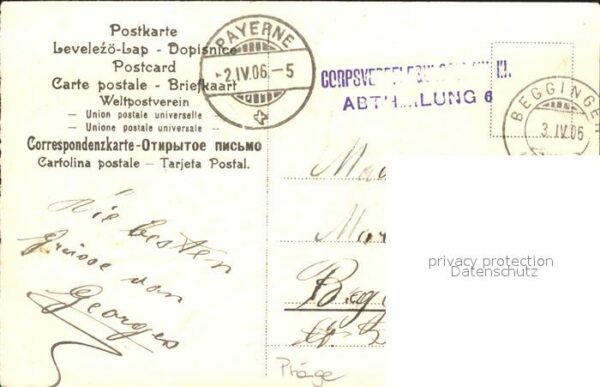 Postkarte
Levelező-Lap - Dopisnice
Postcard
Carte postale - Briefkaart
Weltpostverein
— Union postale universelle —
— Unione postale universale —
Correspondenzkarte-Открытое письмо
Cartolina postale - Tarjeta Postal.
PAYERNE
2.IV.06.-5
ABTHEILUNG 6
BEGGINGEN
3.IV.06
Die besten
Grüsse von
Georges
privacy protection
Datenschutz
Präge